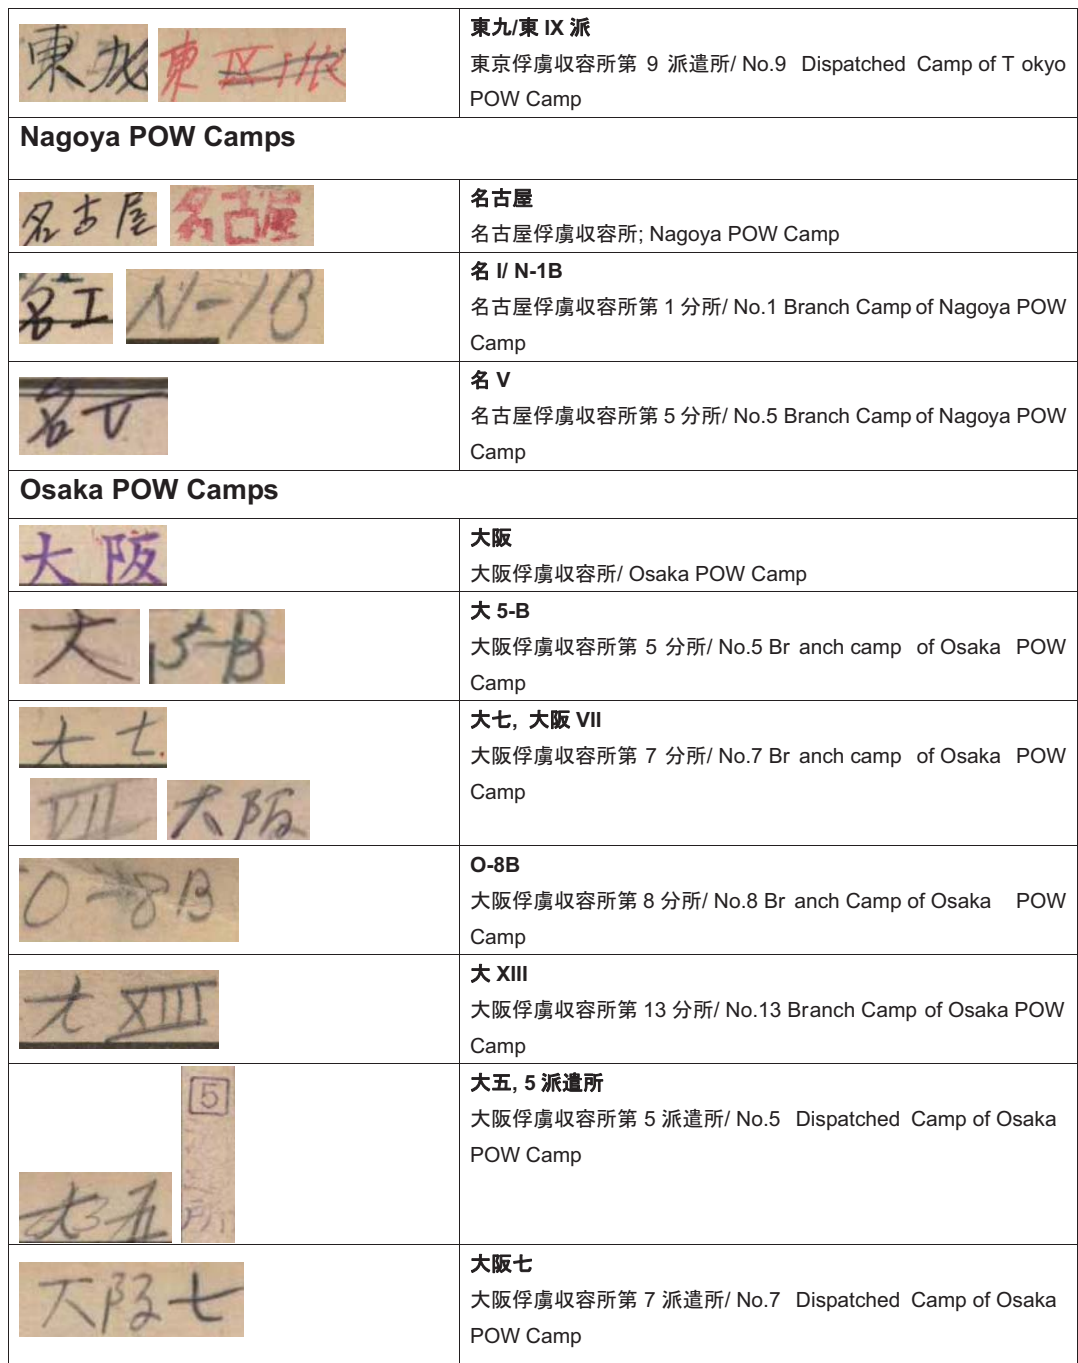 東九 東 IX 派
東九/東 IX 派
東京俘虜収容所第 9 派遣所/ No.9 Dispatched Camp of T okyo
POW Camp
Nagoya POW Camps
名古屋 名古屋
名古屋
名古屋俘虜収容所; Nagoya POW Camp
名 I N-1B
名 I/ N-1B
名古屋俘虜収容所第 1 分所/ No.1 Branch Camp of Nagoya POW
Camp
名 V
名 V
名古屋俘虜収容所第 5 分所/ No.5 Branch Camp of Nagoya POW
Camp
Osaka POW Camps
大阪
大阪
大阪俘虜収容所/ Osaka POW Camp
大 5-B
大 5-B
大阪俘虜収容所第 5 分所/ No.5 Br anch camp of Osaka POW
Camp
大七
VII 大阪
大七, 大阪 VII
大阪俘虜収容所第 7 分所/ No.7 Br anch camp of Osaka POW
Camp
O-8B
O-8B
大阪俘虜収容所第 8 分所/ No.8 Br anch Camp of Osaka POW
Camp
大 XIII
大 XIII
大阪俘虜収容所第 13 分所/ No.13 Branch Camp of Osaka POW
Camp
5
所
大五
大五, 5 派遣所
大阪俘虜収容所第 5 派遣所/ No.5 Dispatched Camp of Osaka
POW Camp
大阪七
大阪七
大阪俘虜収容所第 7 派遣所/ No.7 Dispatched Camp of Osaka
POW Camp